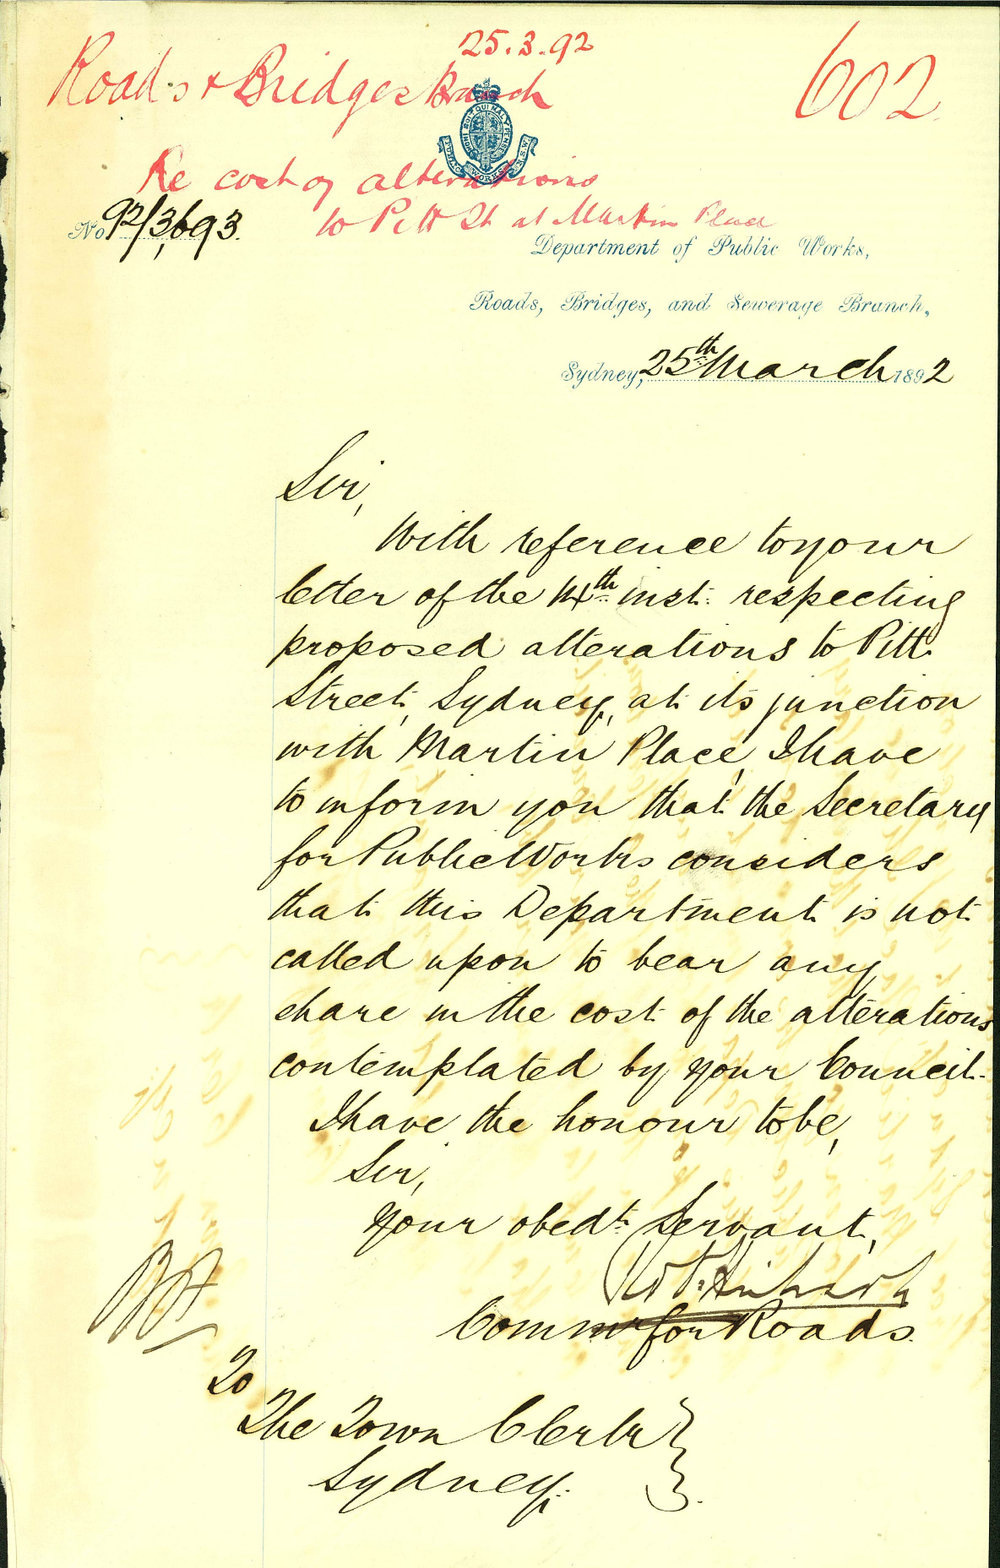 25.3.92
Roads & Bridges Branch
602
Re cost of alterations
to Pitt St at Martin Place
No 92/3,693.
Department of Public Works,
Roads, Bridges, and Sewerage Branch,
Sydney, 25th March 1892
Sir,
With reference to your
letter of the 14th inst. respecting
proposed alterations to Pitt
Street, Sydney, at its junction
with Martin Place, I have
to inform you that the Secretary
for Public Works considers
that this Department is not
called upon to bear any
share in the cost of the alterations
contemplated by your Council.
I have the honour to be,
Sir,
Your obedt. Servant,
Commr for Roads.
To
The Town Clerk
Sydney.